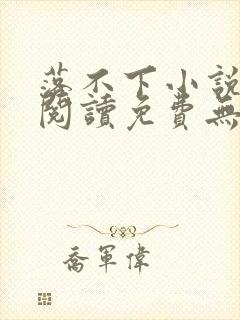 落不下小說
閱讀免費無
喬軍偉